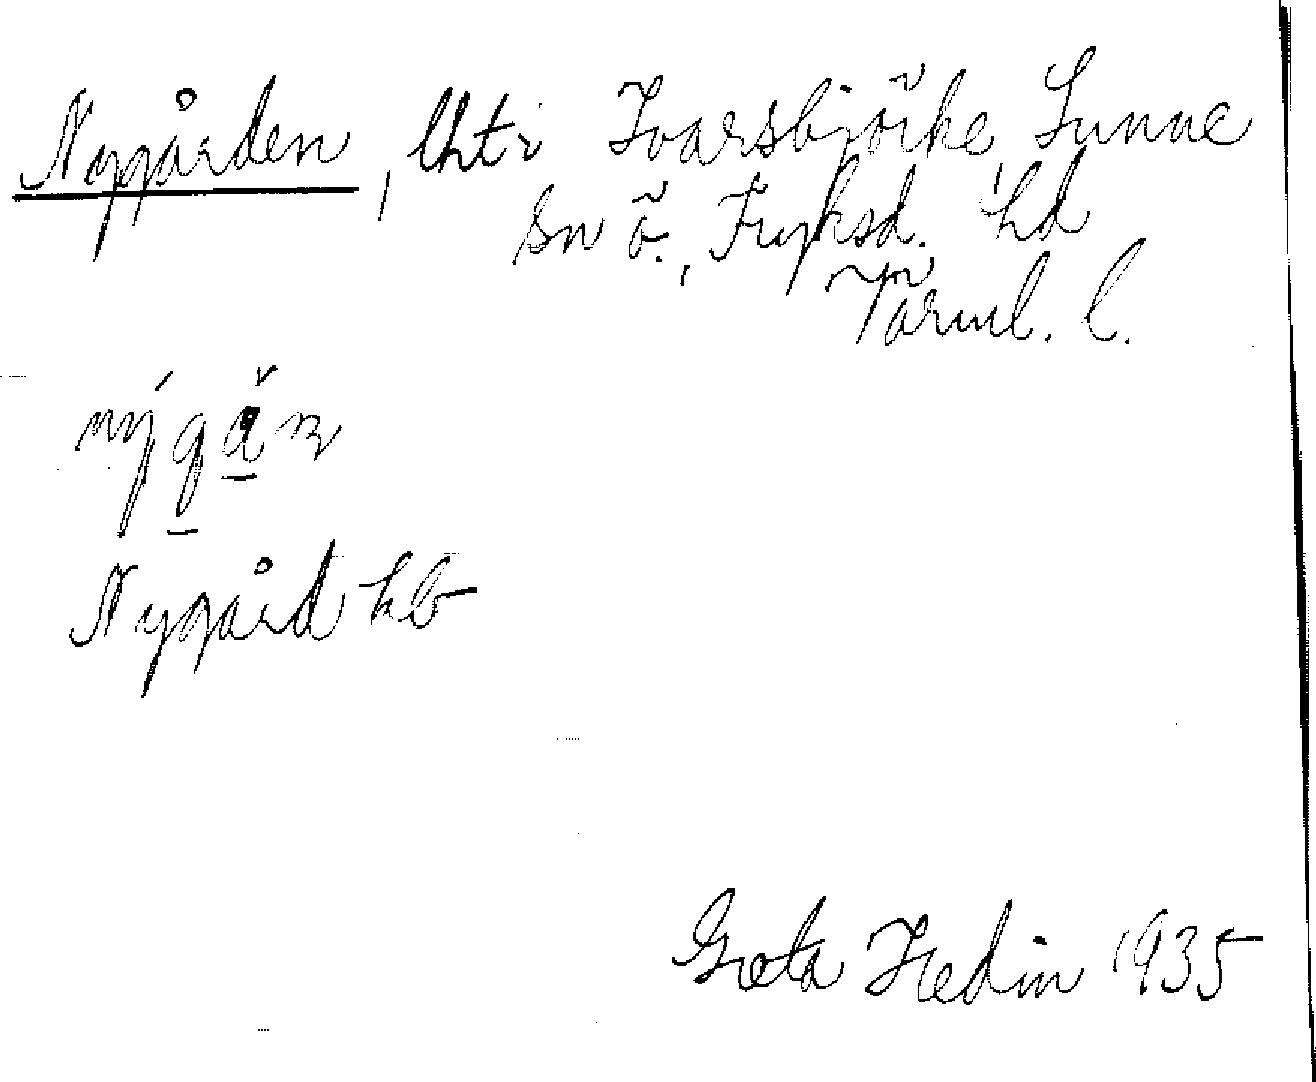 Nygården, lht i Ivarsbjörke, Sunne
sn ö., Fryksd. hd
Värml. l.
Nygård kb
Greta Hedin 1935